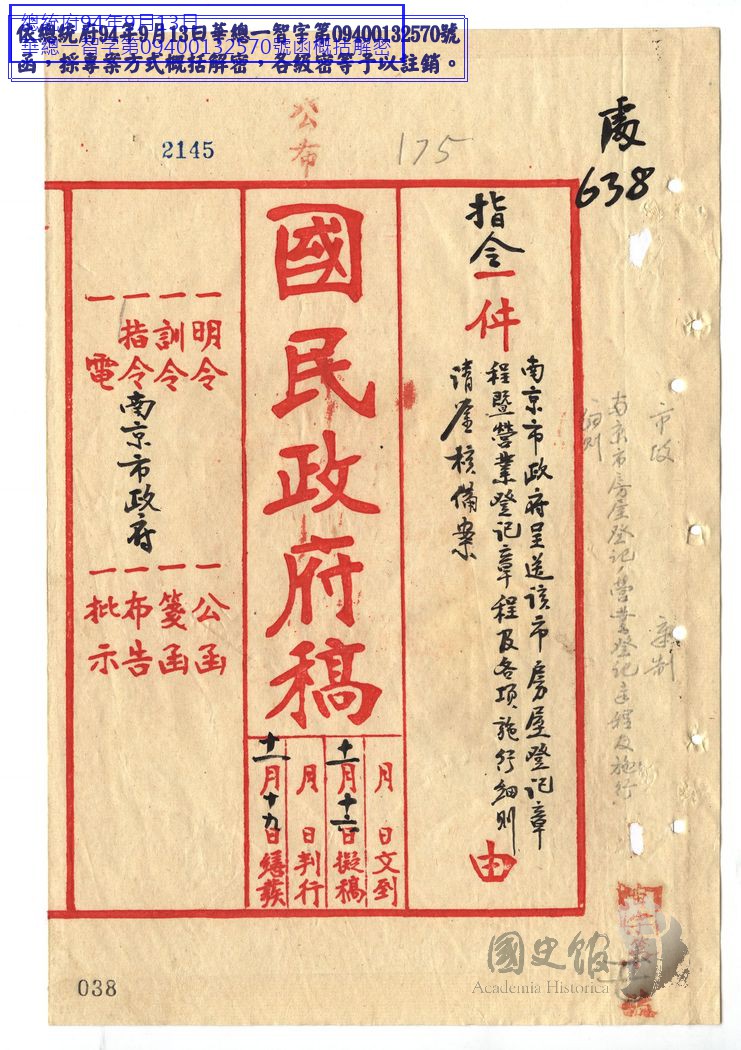 總統府94年9月13日
華總一智字第09400132570號函概括解密
依總統府94年9月13日華總一智字第09400132570號
函，採專案方式概括解密，各級密等予以註銷。
公布
2145
175
638
市政
南京市房屋登記營業登記章程及施行
細則
指令一件
南京市政府呈送該市房屋登記章
程暨營業登記章程及各項施行細則
請鑒核備案
由
國民政府稿
月 日文到
十一月十六日擬稿
月 日判行
十一月十九日繕發
一明令
一訓令
一指令
一電
南京市政府
一公函
一箋函
一布告
一批示
國史館
Academia Historica
038